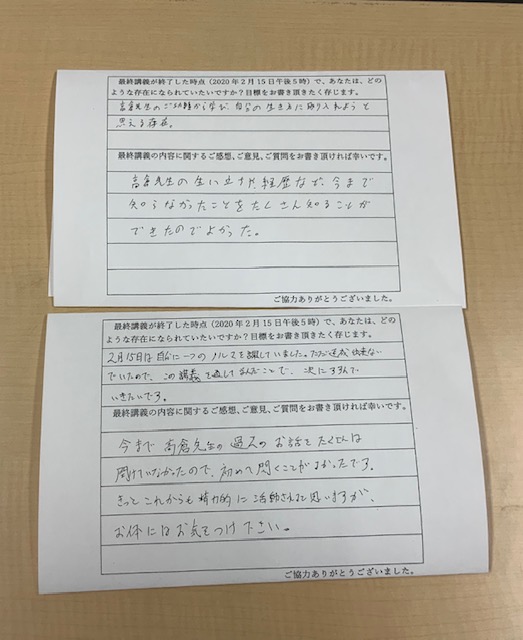 最終講義が終了した時点（2020年2月15日午後5時）で、あなたは、どの
ような存在になられていたいですか？目標をお書き頂きたく存じます。
高倉先生のご功績から学び、自分の生き方に取り入れようと
思える存在。
最終講義の内容に関するご感想、ご意見、ご質問をお書き頂ければ幸いです。
高倉先生の生い立ちや、経歴など、今まで
知らなかったことをたくさん知ることが
できたのでよかった。
ご協力ありがとうございました。
最終講義が終了した時点（2020年2月15日午後5時）で、あなたは、どの
ような存在になられていたいですか？目標をお書き頂きたく存じます。
2月15日は自分に一つのノルマを課していました。ただ達成出来ない
でいたので、この講義を通して学んだことで、次に望んで
いきたいです。
最終講義の内容に関するご感想、ご意見、ご質問をお書き頂ければ幸いです。
今まで高倉先生の過去のお話をたくさんは
聞けていなかったので、初めて聞くことが多かったです。
きっとこれからも精力的に活動されると思いますが、
お体にはお気をつけ下さい。
ご協力ありがとうございました。